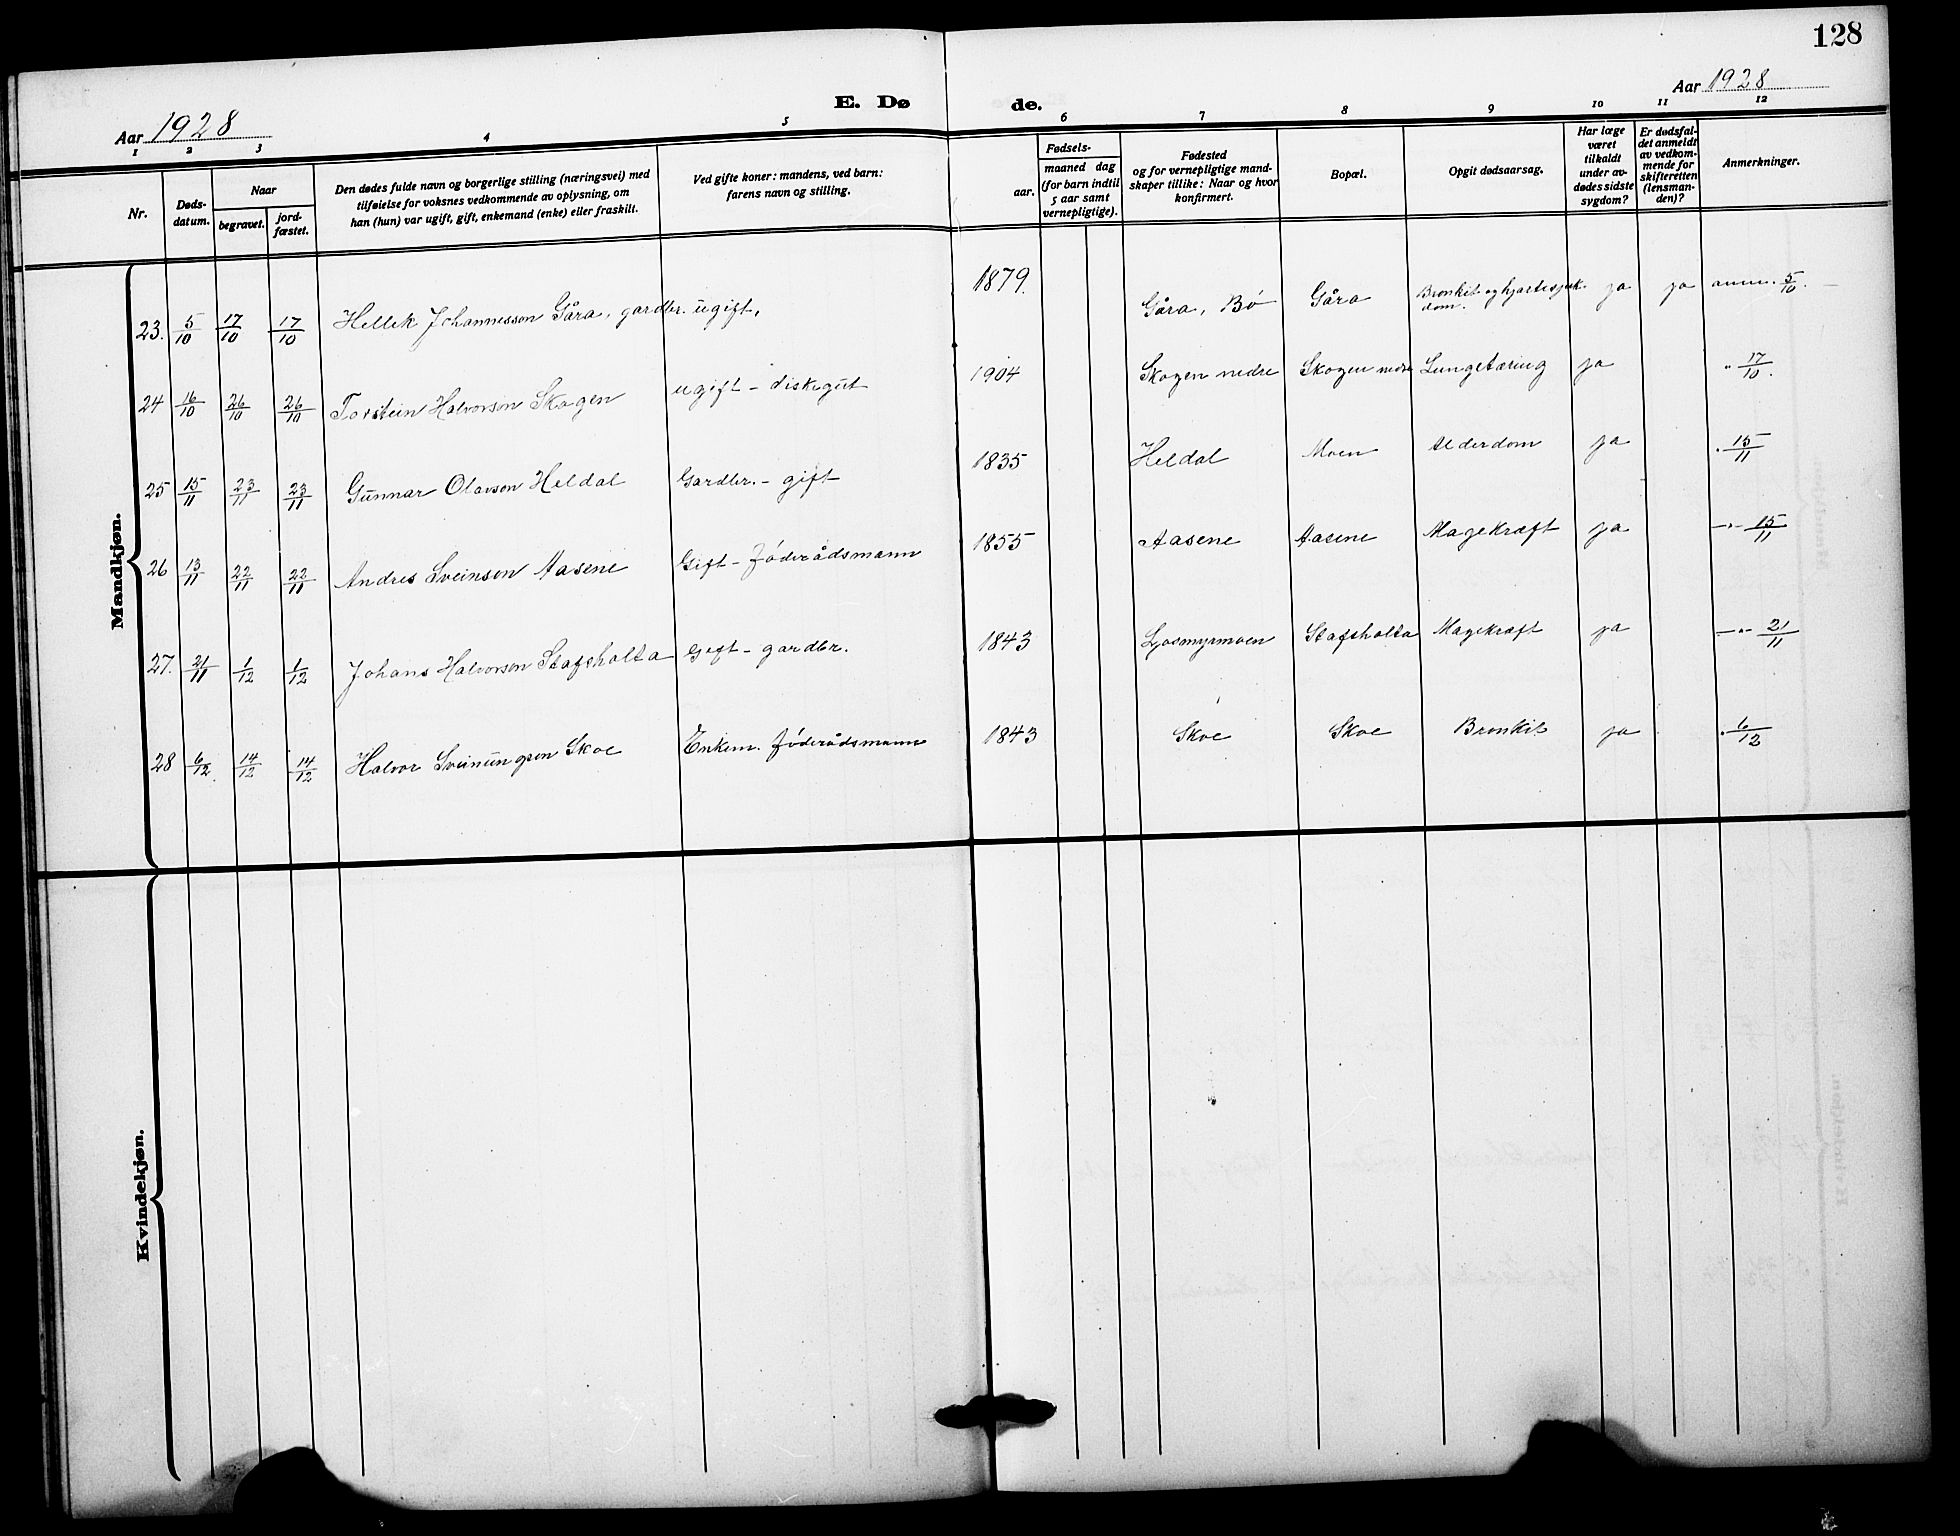 128
E. Dø de.
Aar 1928
Aar 1928
1 2 3 4 5 6 7 8 9 10 11 12
Nr.
Døds-
datum.
Naar
begravet.
jord-
fæstet.
Den dødes fulde navn og borgerlige stilling (næringsvei) med
tilføielse for voksnes vedkommende av oplysning, om
han (hun) var ugift, gift, enkemand (enke) eller fraskilt.
Ved gifte koner: mandens, ved barn:
farens navn og stilling.
Fødsels-
aar.
maaned dag
(for barn indtil
5 aar samt
vernepligtige).
Fødested
og for vernepligtige mand-
skaper tillike: Naar og hvor
konfirmert.
Bopæl.
Opgit dødsaarsag.
Har læge
været
tilkaldt
under av-
dødes sidste
sygdom?
Er dødsfal-
det anmeldt
av vedkom-
mende for
skifteretten
(lensman-
den)?
Anmerkninger.
Mandkjøn.
23. 5/10 17/10 17/10 Hellek Johannesson Gåra, gardbr. ugift, 1879. Gåra, Bø Gåra Bronkit og hjartesjuk-
dom. ja ja anm. 5/10. —
24 16/10 26/10 26/10 Torstein Halvorson Skogen ugift - diskegut 1904 Skogen nedre Skogen nedre Lungetæring ja " 17/10.
25 15/11 23/11 23/11 Gunnar Olavson Heldal Gardbr. - gift 1835 Heldal Moen Alderdom ja . 15/11
26 13/11 22/11 22/11 Andres Sveinson Aasene Gift - føderådsmann 1855 Aasene Aasene Magekræft ja -"- 15/11
27. 21/11 1/12 1/12 Johans Halvorson Stafsholta Gift - gardbr. 1843 Ljosmyrmoen Stafsholta Magekræft ja -"- 21/11
28 6/12. 14/12 14/12 Halvor Sveinungson Skoe Enkem. føderådsmann 1843 Skoe Skoe Bronkit ja . 6/12
Kvindekjøn.